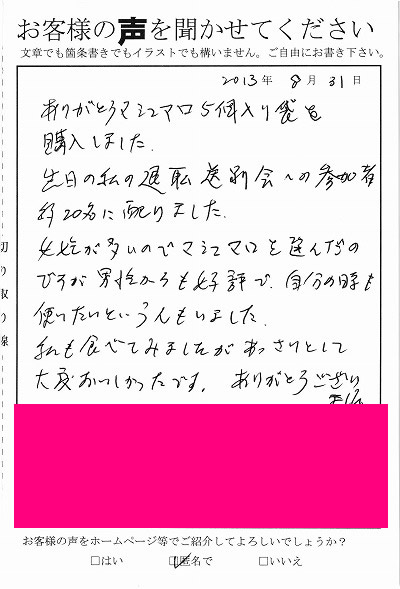 お客様の声を聞かせてください
文章でも箇条書きでもイラストでも構いません。ご自由にお書き下さい。
2013年 8月 31日
ありがとうマシュマロ5個入り袋を
購入しました.
先日の私の退転送別会への参加者
約20名に配りました.
女性が多いのでマシュマロを選んだの
ですが男性からも好評で、自分の時も
使いたいという人もいました.
私も食べてみましたがあっさりとして
大変おいしかったです。ありがとうござい
ました
切り取り線
お客様の声をホームページ等でご紹介してよろしいでしょうか?
□はい □匿名で □いいえ